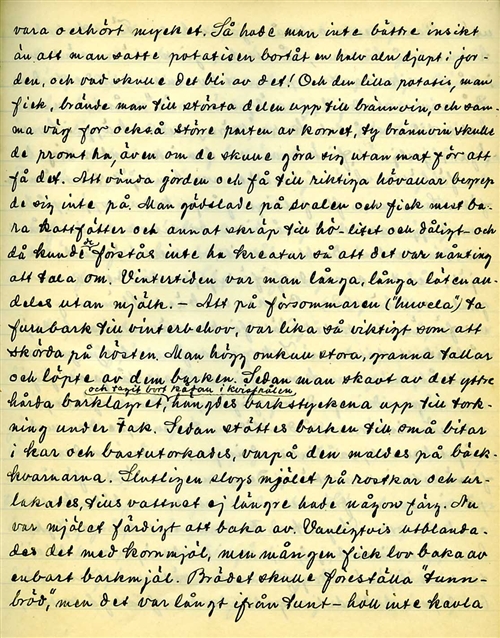 vara oerhört mycket. Så hade man inte bättre insikt
än att man satte potatisen bortåt en halv aln djupt i jor-
den, och vad skulle det bli av det! Och den lilla potatis, man
fick, brände man till största delen upp till brännvin, och sam-
ma väg for också större parten av kornet, ty brännvin skulle
de promt ha, även om de skulle göra sig utan mat för att
få det. Att vända jorden och få till riktiga hövallar begrep
de sig inte på. Man gödslade på svalen och fick mest ba-
ra kattfötter och annat skräp till hö - litet och dåligt - och
då kunde de förstås inte ha kreatur så att det var nånting
att tala om. Vintertiden var man långa, långa läten an-
deles utan mjölk. - Att på försommaren ("huvela") ta
furubark till vinterbehov, var lika så viktigt som att
skörda på hösten. Man högg omkull stora, granna tallar
och löpte av dem barken. Sedan man skavt av det yttre
och tagit bort kådan i kvisthålen
hårda barklagret, hängdes barkstyckena upp till tork-
ning under tak. Sedan stöttes barken till små bitar
i kar och bastutorkades, varpå den maldes på bäck-
kvarnarna. Slutligen slogs mjölet på rostkar och ur-
lakades, tills vattnet ej längre hade någon färg. Nu
var mjölet färdigt att baka av. Vanligtvis utblanda-
des det med kornmjöl, men mången fick lov baka av
enbart barkmjöl. Brödet skulle föreställa "tunn-
bröd," men det var långt ifrån tunt - höll inte kavla